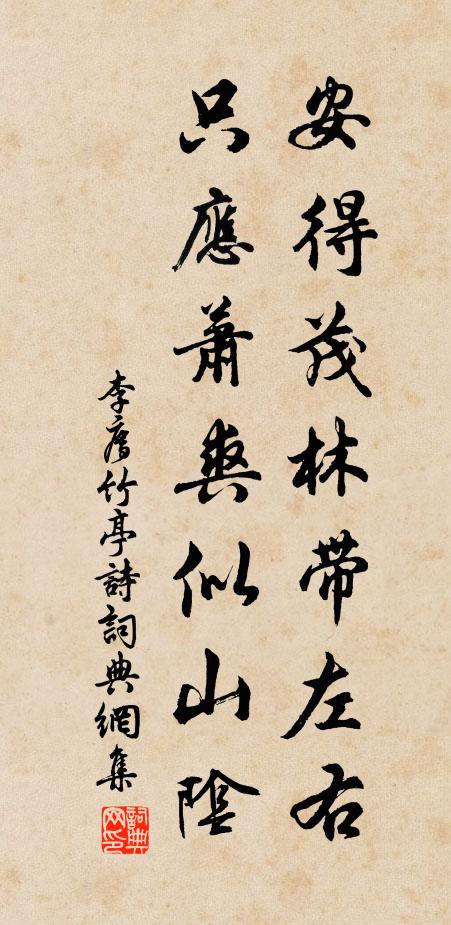 安得茂林帶左右
只應蕭爽似山陰
李廌竹亭詩詞典網集
詞典網印